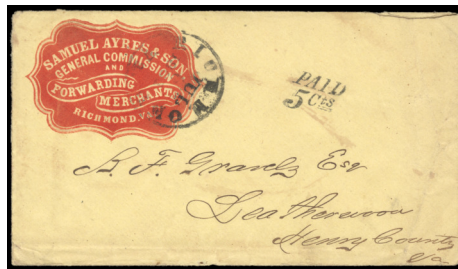 SAMUEL AYRES & SON,
GENERAL COMMISSION
AND
FORWARDING
MERCHANTS
RICHMOND, VA.
PAID
5 Cts
Esq
Leatherwood
Henry County
Va